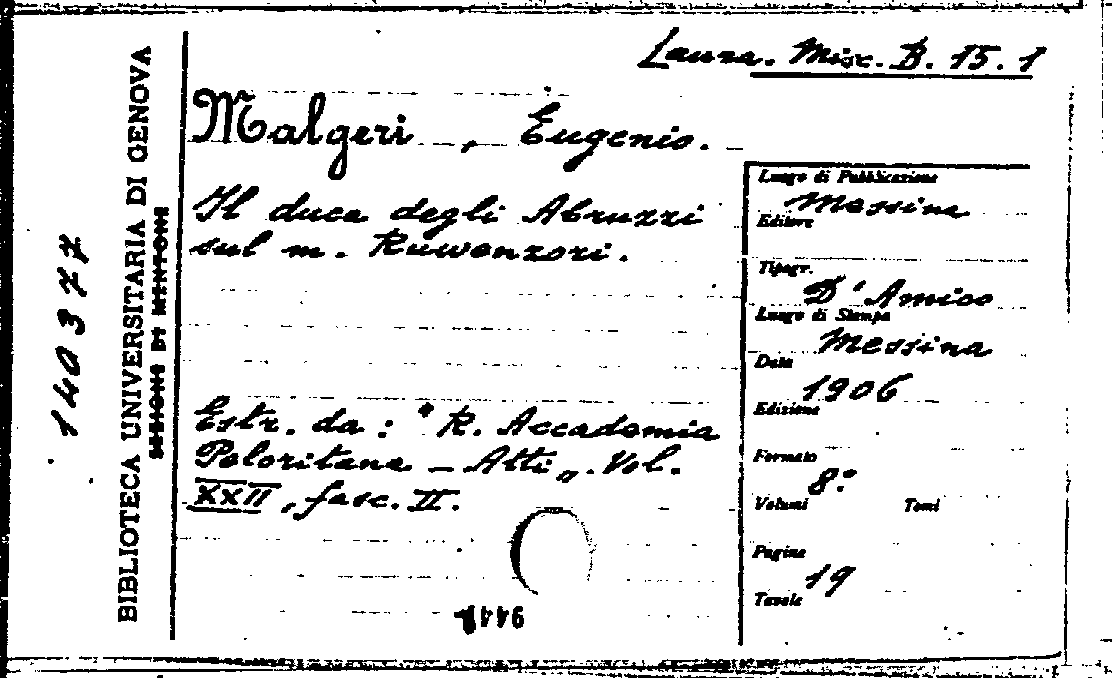 Laura. Misc. B. 15. 1
Malgeri, Eugenio.
Il duca degli Abruzzi
sul m. Ruwenzori.
Estr. da: "R. Accademia
Peloritana – Atti„. Vol.
XXII, fasc. II.
Luogo di Pubblicazione
Messina
Editore
Tipogr.
D'Amico
Luogo di Stampa
Messina
Data
1906
Edizione
Formato
8°
Volumi Tomi
Pagine
19
Tavole
BIBLIOTECA UNIVERSITARIA DI GENOVA
140377